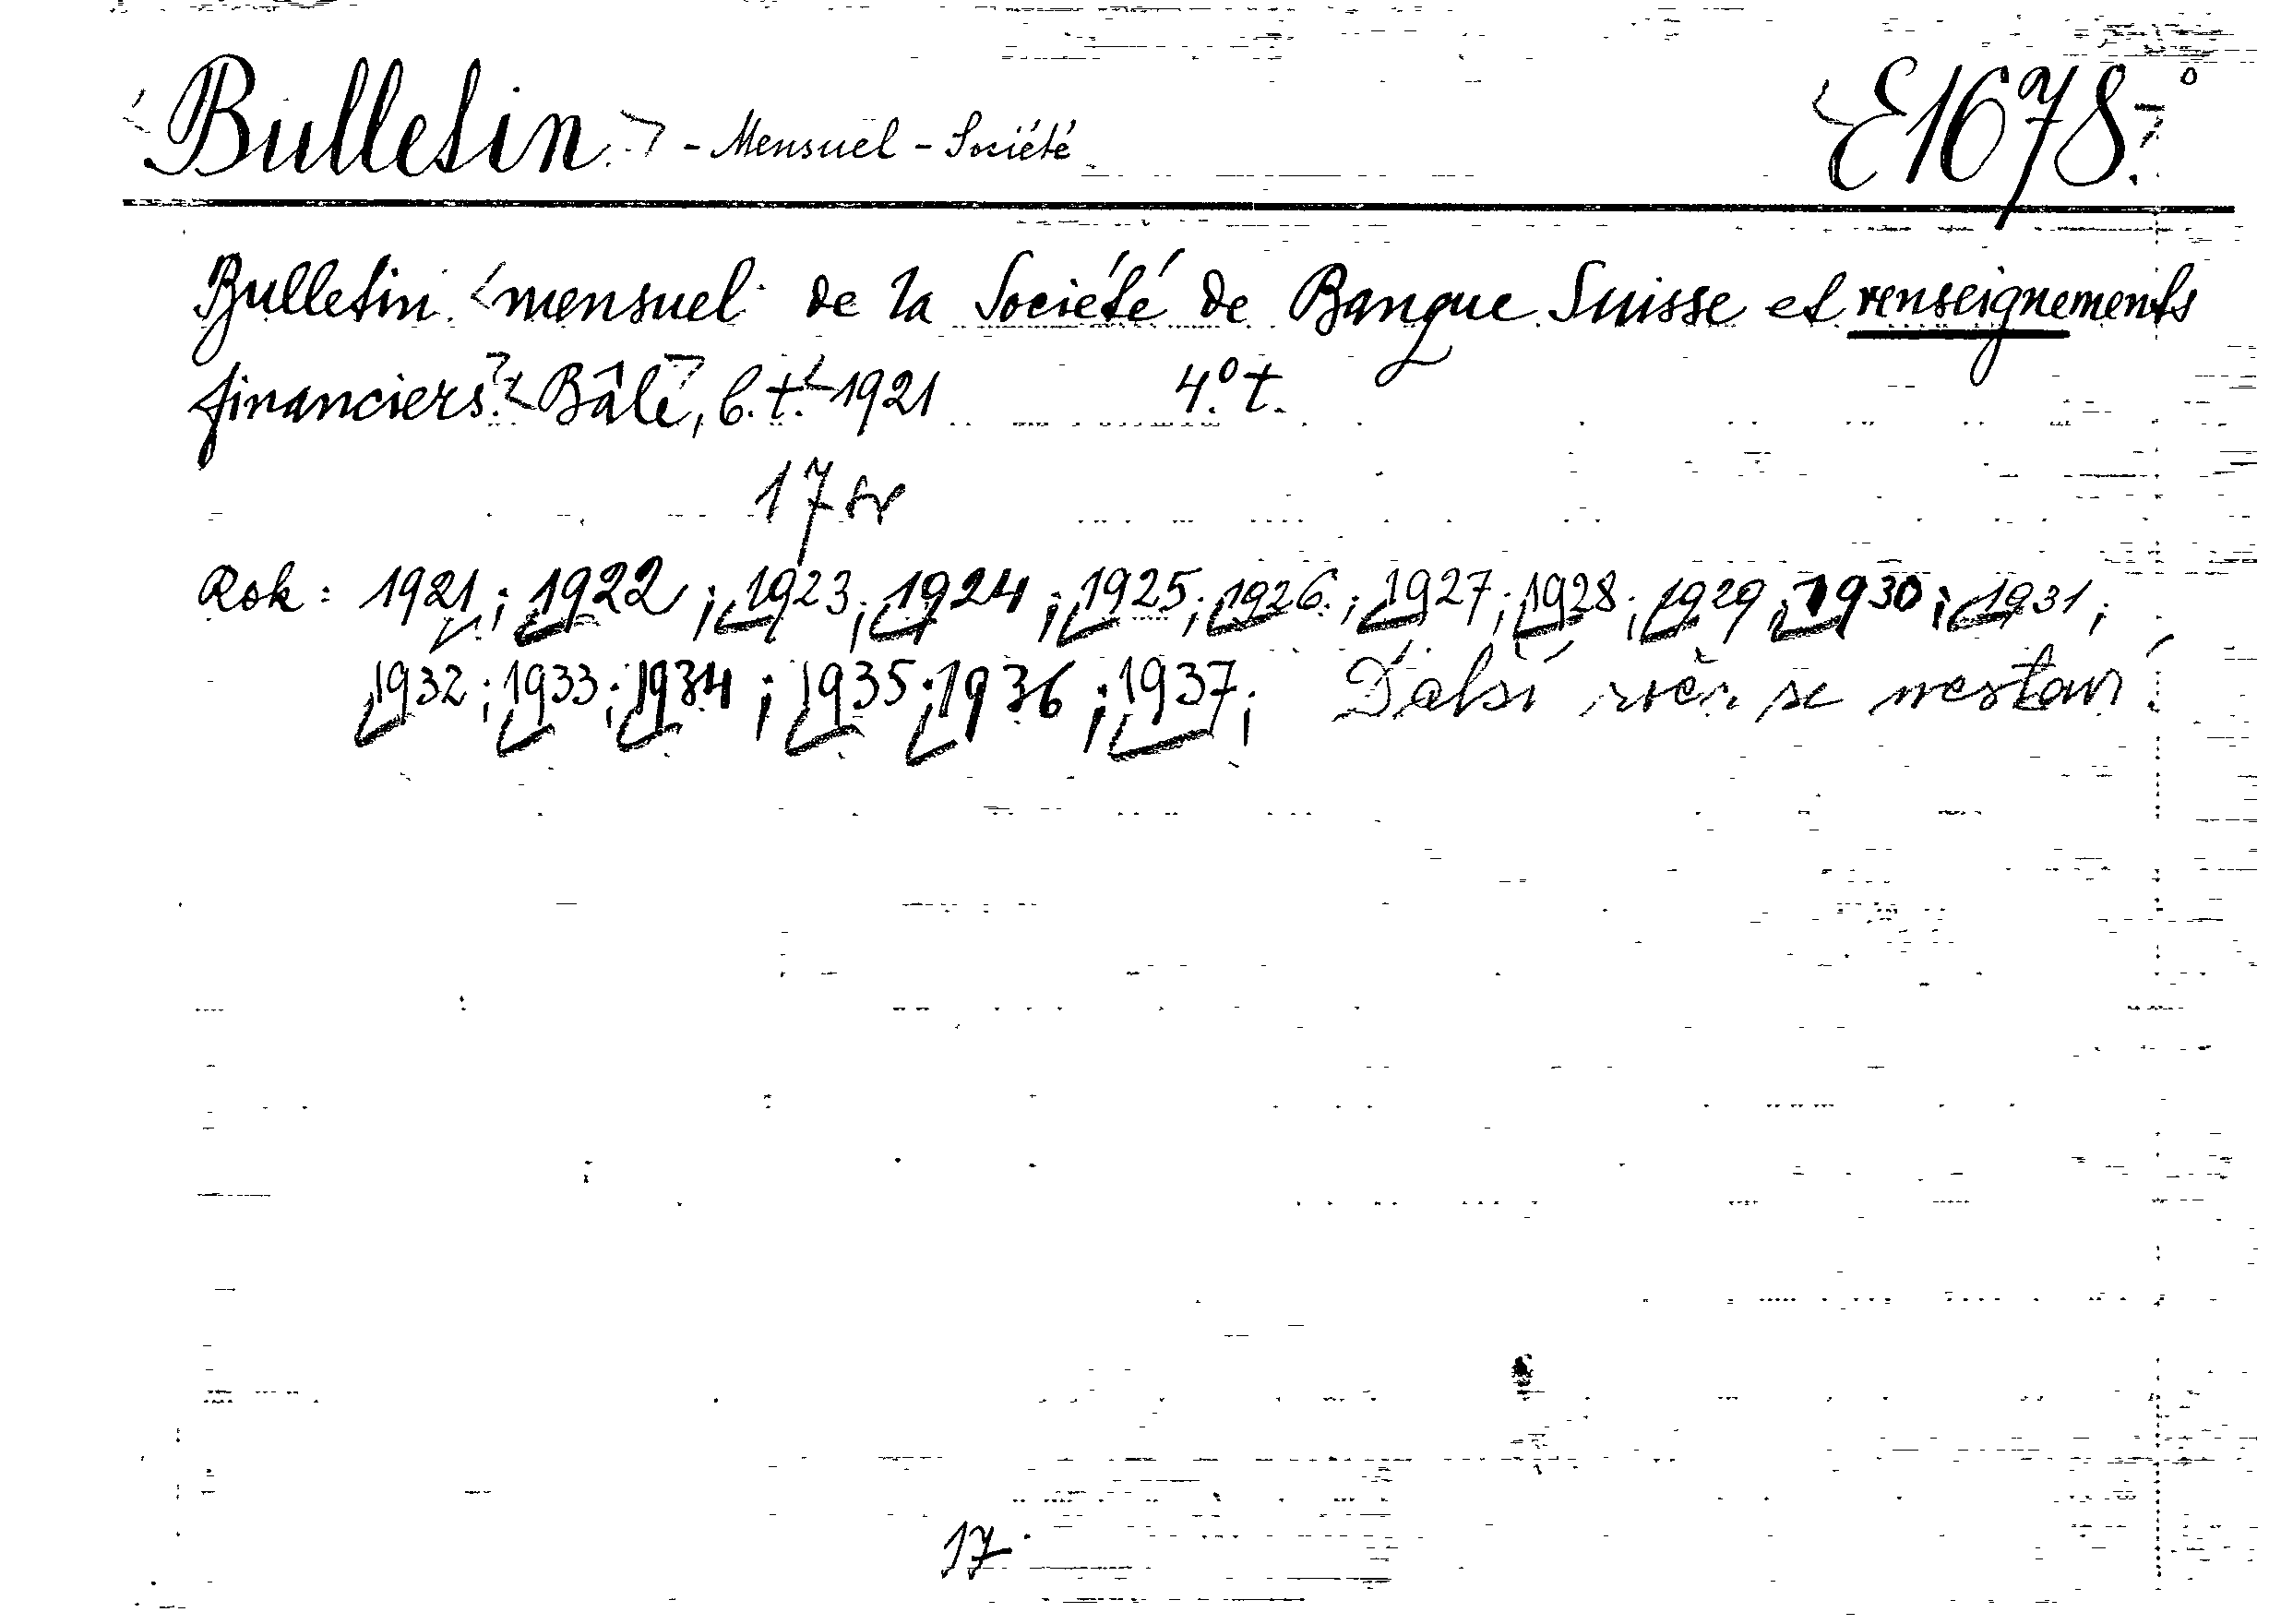 <Bulletin.> - Mensuel - Société <E1678.>°
Bulletin <mensuel de la Société de Banque Suisse et renseignements
financiers.> <Bâle>, b. t. <1921 4.° t.
17 sv
Rok: 1921; 1922; 1923; 1924; 1925; 1926; 1927; 1928; 1929; 1930; 1931;
1932; 1933; 1934; 1935; 1936; 1937; Další roč. se nestaví
17